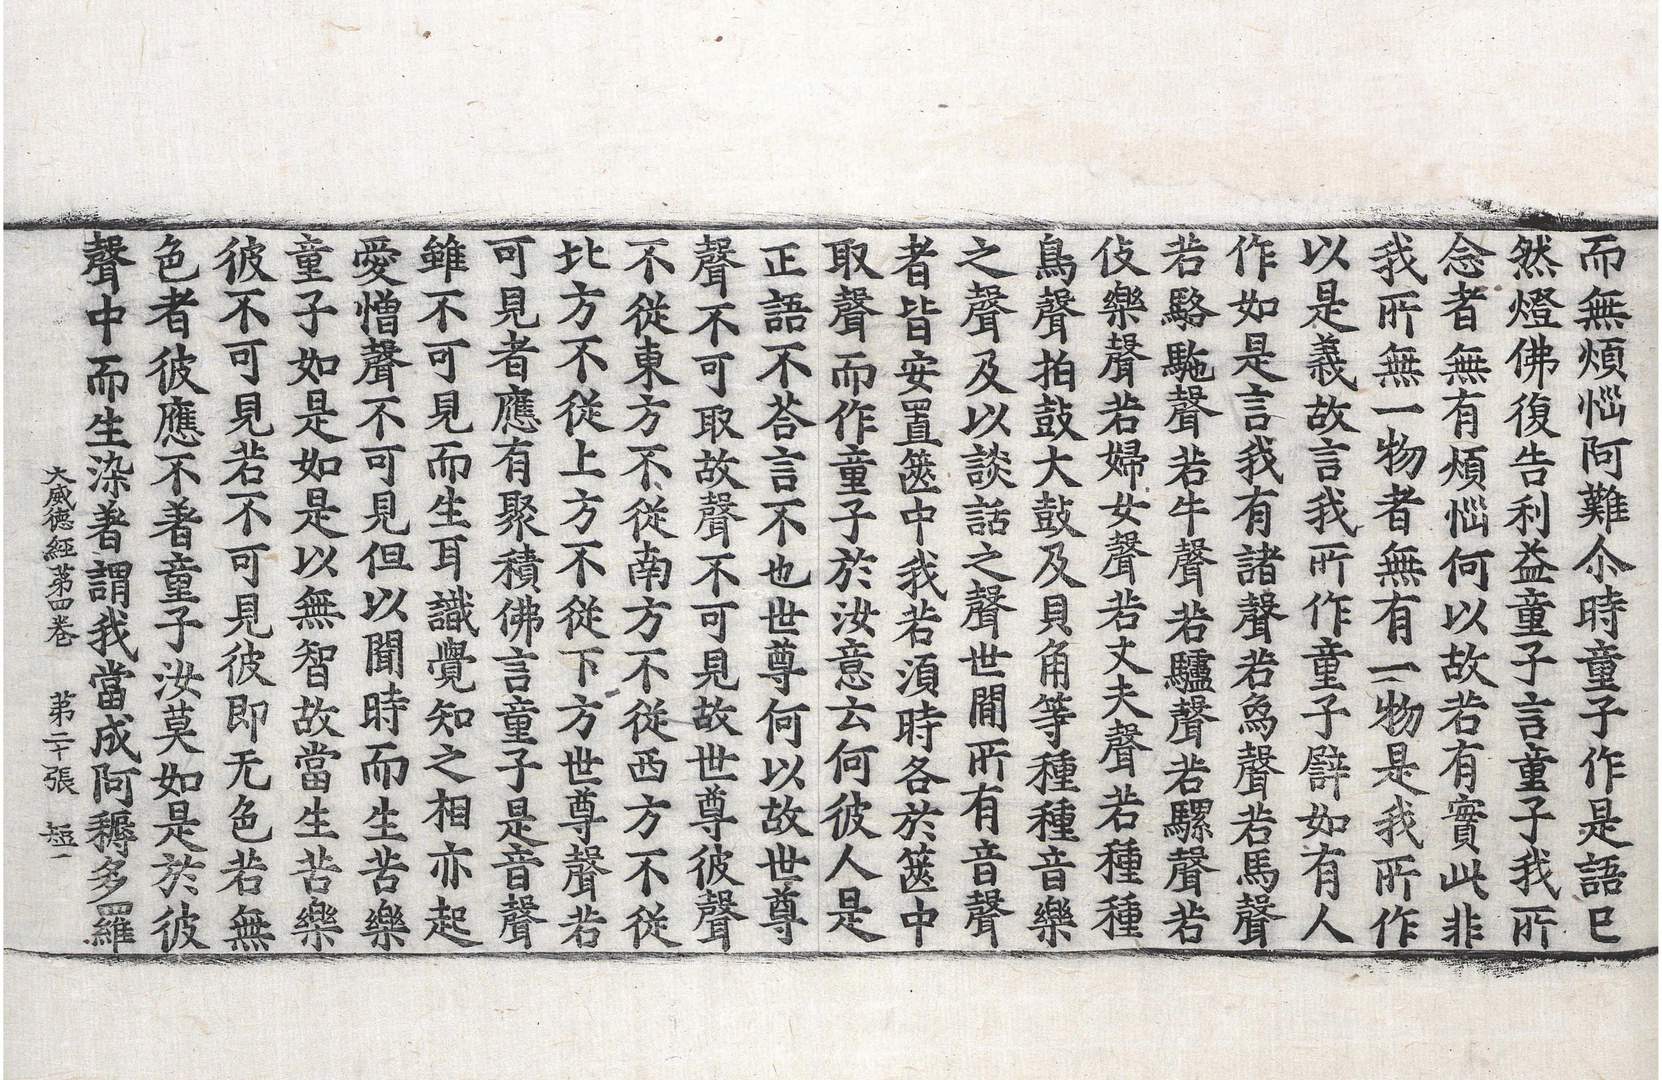 而無煩惱阿難尒時童子作是語已
然燈佛復告利益童子言童子我所
念者無有煩惱何以故若有實此非
我所無一物者無有一物是我所作
以是義故言我所作童子譬如有人
作如是言我有諸聲若爲聲若馬聲
若駱駞聲若牛聲若驢聲若騾聲若
伎樂聲若婦女聲若丈夫聲若種種
鳥聲拍鼓大鼓及貝角等種種音樂
之聲及以談話之聲世間所有音聲
者皆安置篋中我若須時各於篋中
取聲而作童子於汝意云何彼人是
正語不荅言不也世尊何以故世尊
聲不可取故聲不可見故世尊彼聲
不從東方不從南方不從西方不從
北方不從上方不從下方世尊聲若
可見者應有聚積佛言童子是音聲
雖不可見而生耳識覺知之相亦起
愛憎聲不可見但以聞時而生苦樂
童子如是如是以無智故當生苦樂
彼不可見若不可見彼即无色若無
色者彼應不著童子汝莫如是於彼
聲中而生染著謂我當成阿耨多羅
大威德經第四卷 第二十張 短一